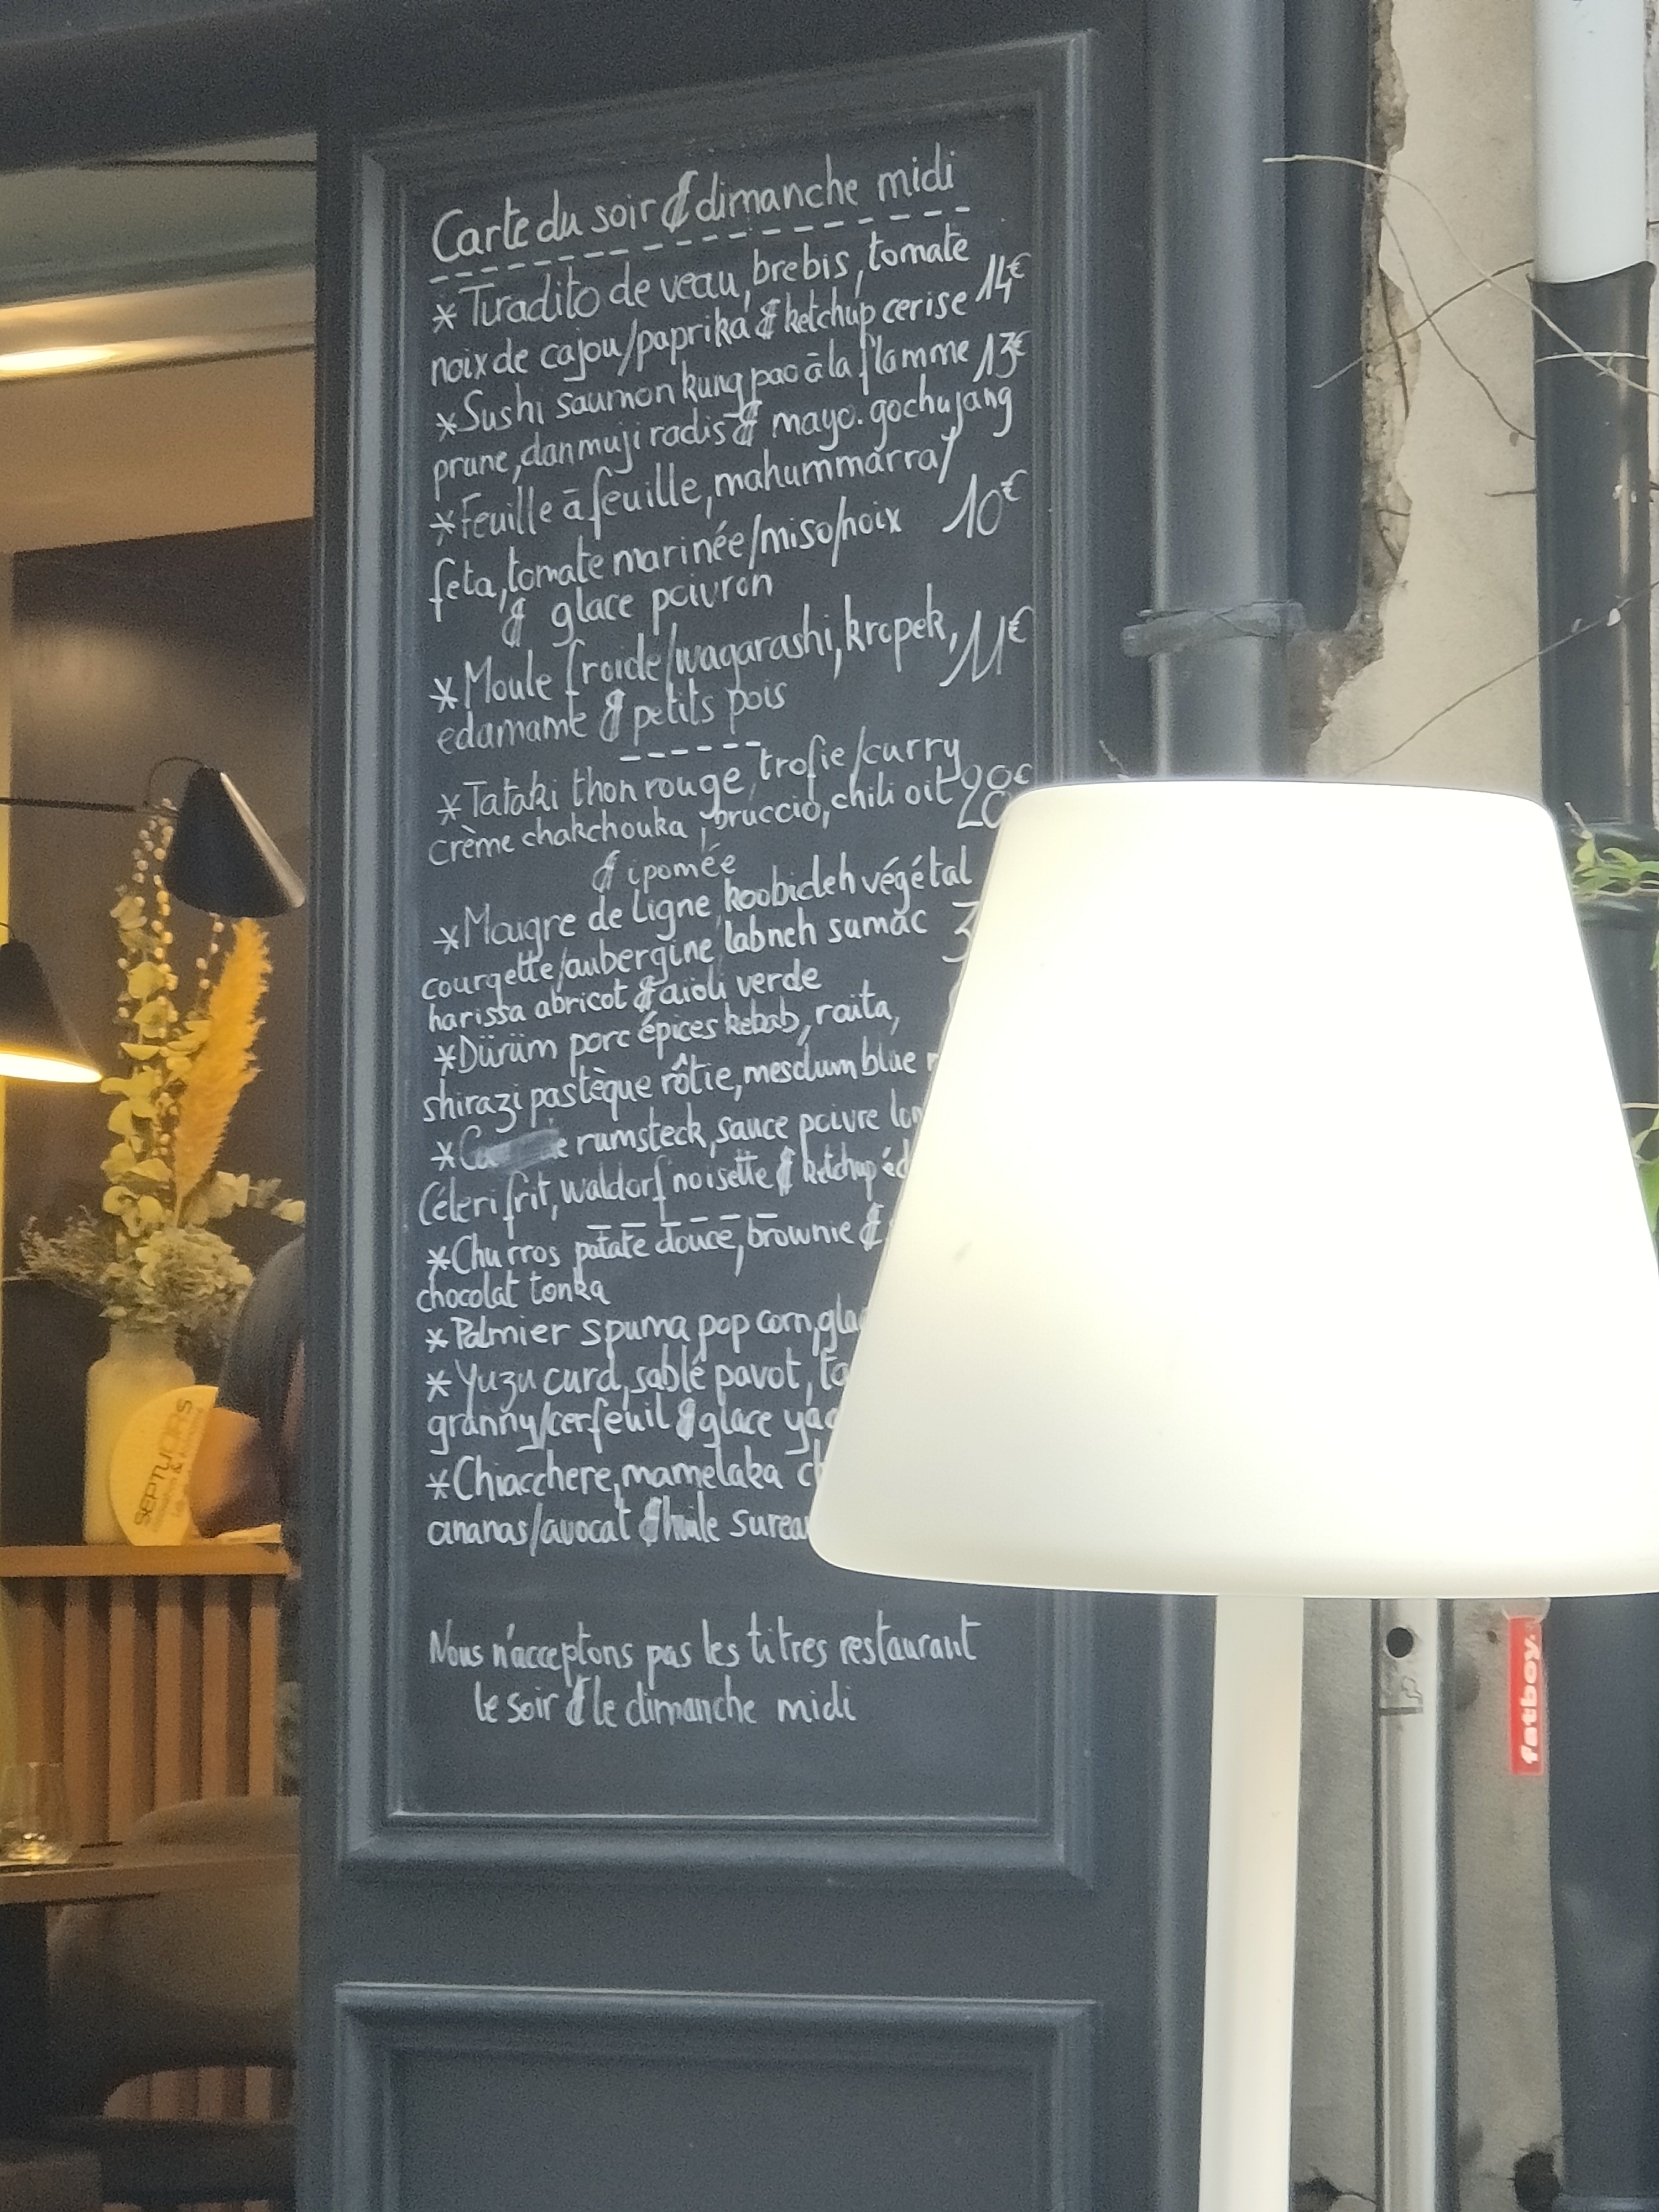 Carte du soir & dimanche midi
* Tiradito de veau, brebis, tomate
noix de cajou/paprika & ketchup cerise 14€
* Sushi saumon kung pao à la flamme 13€
prune, danmuji radis & mayo. gochujang
* Feuille à feuille, mahummarra/
feta, tomate marinée/miso/noix 10€
& glace poivron
* Moule froide/wagarashi, kropek, 11€
edamame & petits pois
* Tataki thon rouge, trofie/curry
crème chakchouka, bruccio, chili oil 28€
& ipomée
* Maigre de ligne, koobideh végétal
courgette/aubergine, labneh sumac 3
harissa abricot & aioli verde
* Dürüm porc épices kebab, raita,
shirazi pastèque rôtie, mesclum blue
* rumsteck, sauce poivre
Céleri frit, waldorf noisette & ketchup
* Churros patate douce, brownie &
chocolat tonka
* Palmier spuma pop corn,
* Yuzu curd, sablé pavot,
granny/cerfeuil & glace
* Chiacchere, mamelaka
ananas/avocat & huile
Nous n'acceptons pas les titres restaurant
le soir & le dimanche midi
SEPTUORS
fatboy.